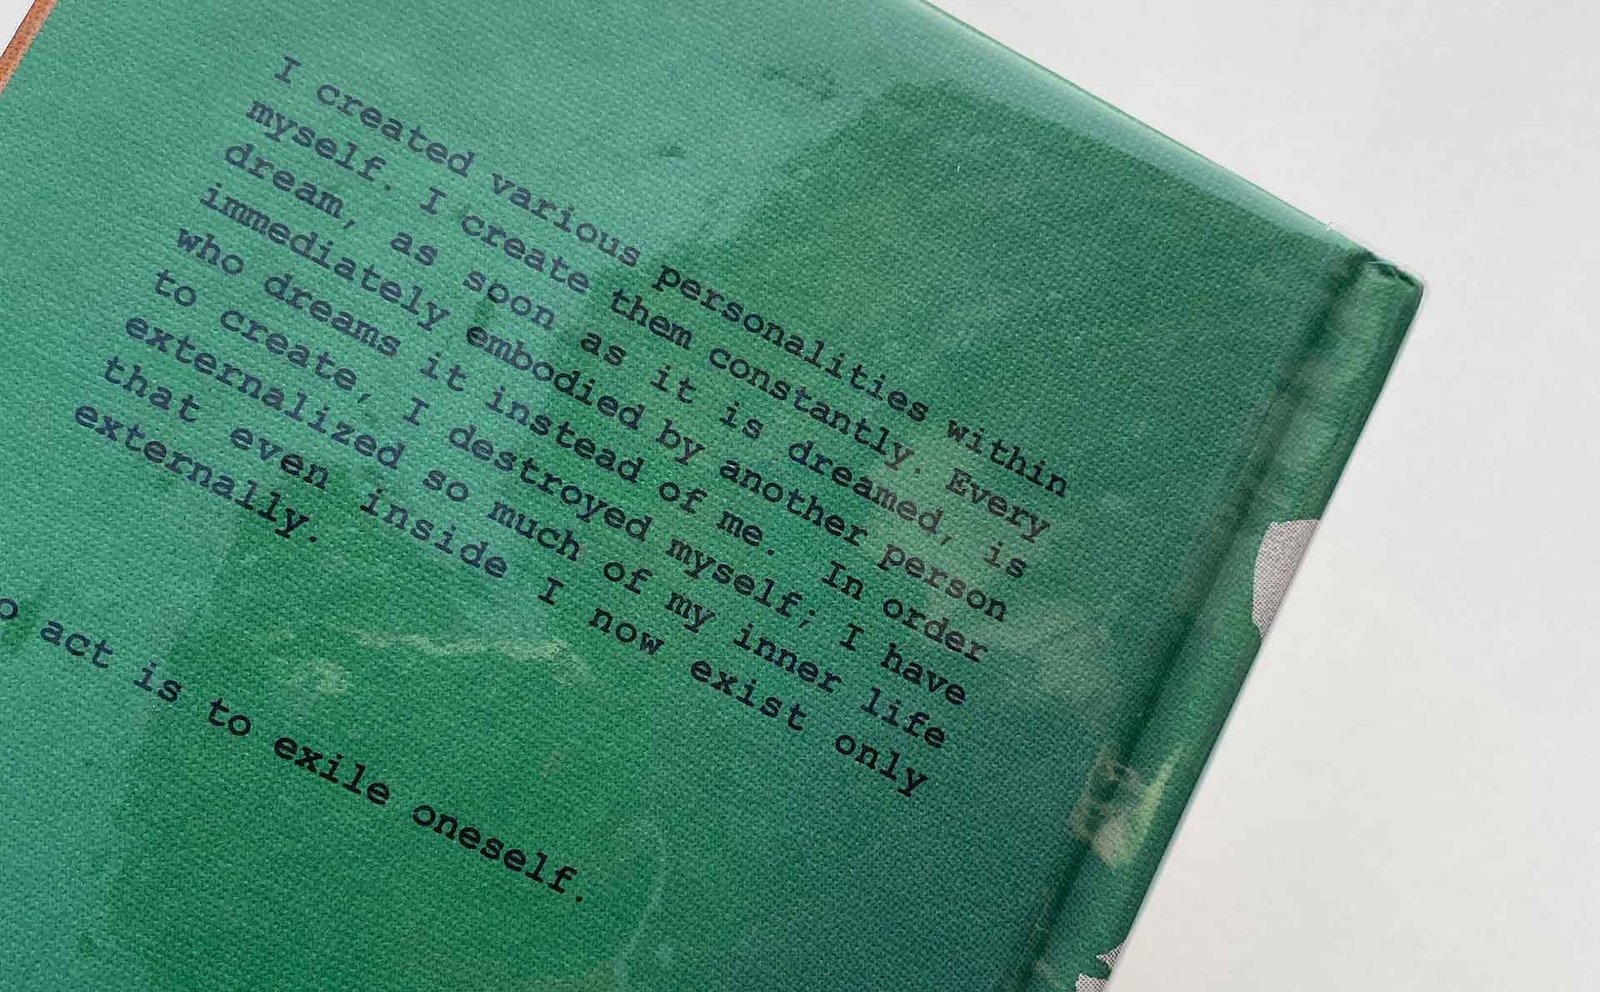 I created various personalities within
myself. I create them constantly. Every
dream, as soon as it is dreamed, is
immediately embodied by another person
who dreams it instead of me. In order
to create, I destroyed myself; I have
externalized so much of my inner life
that even inside I now exist only
externally.
act is to exile oneself.